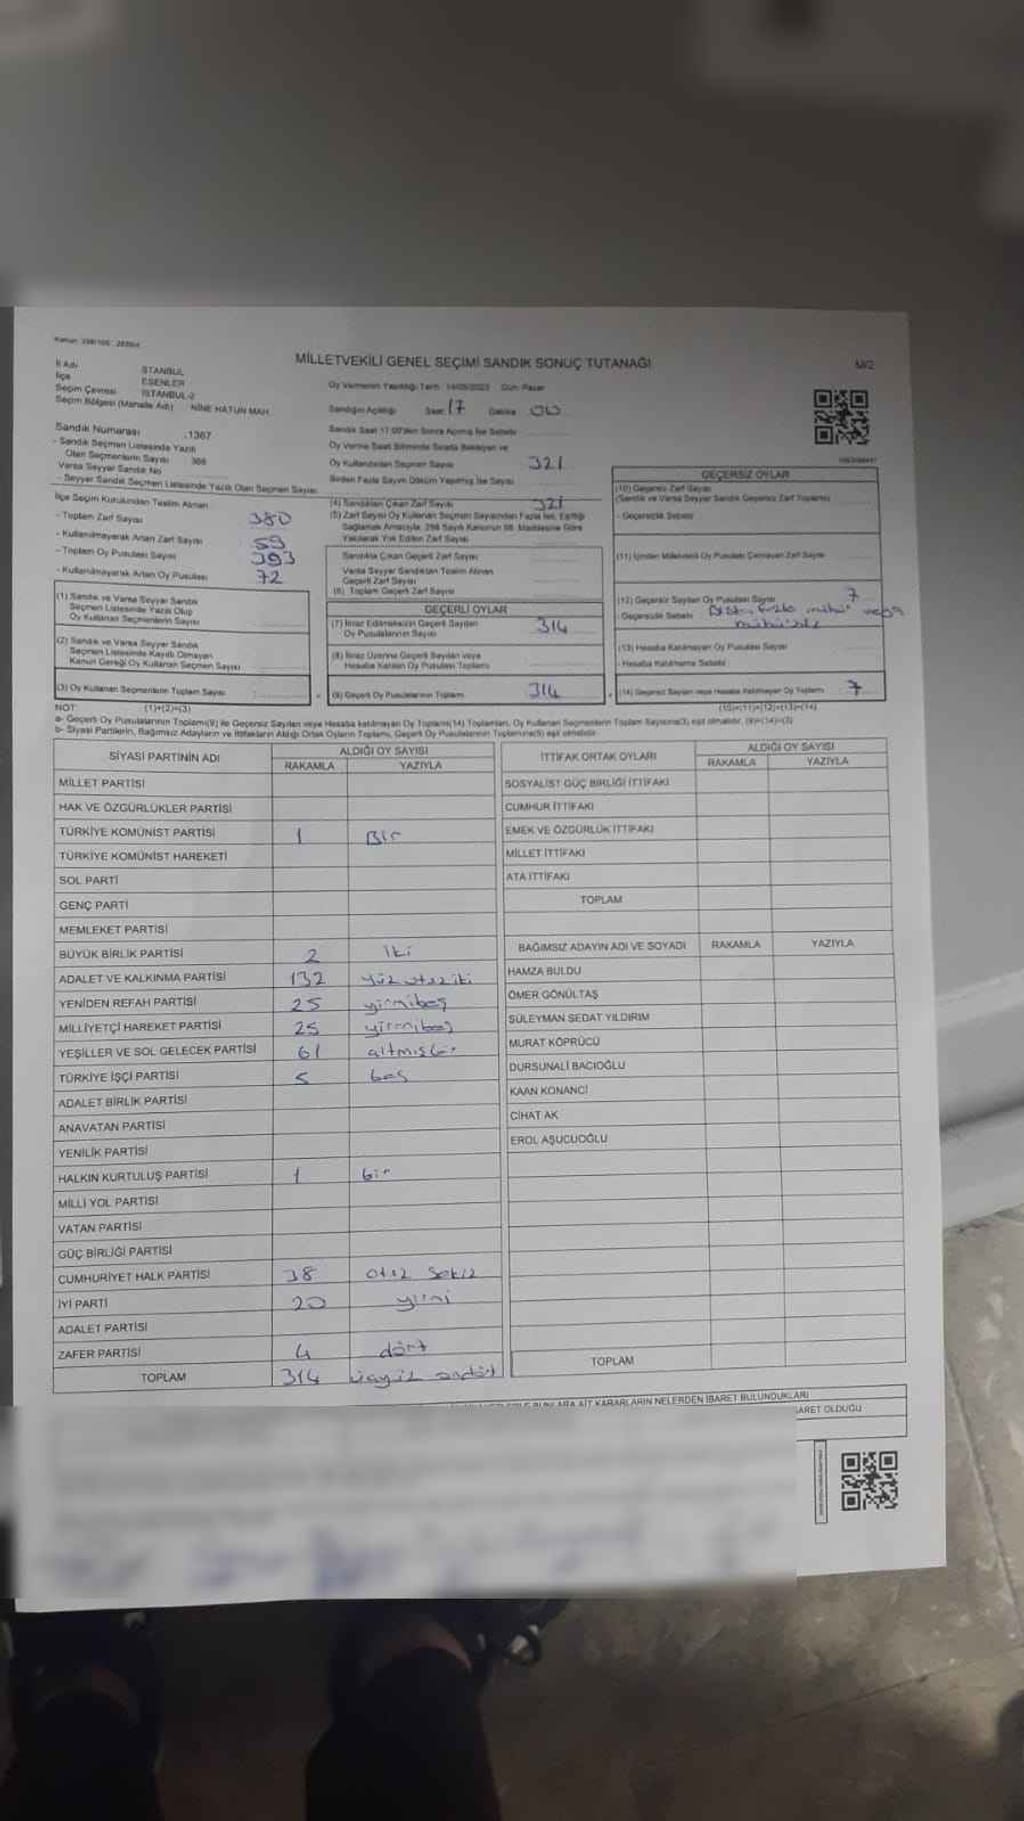 MİLLETVEKİLİ GENEL SEÇİMİ SANDIK SONUÇ TUTANAĞI
İl Adı İSTANBUL
İlçe ESENLER
Seçim Çevresi İSTANBUL-2
Seçim Bölgesi (Mahalle Adı) NİNE HATUN MAH.
Oy Vermenin Yapıldığı Tarih 14/05/2023 Gün Pazar
Sandığın Açıldığı Saat 17 Dakika 00
Sandık Numarası 1367
- Sandık Seçmen Listesinde Yazılı
Olan Seçmenlerin Sayısı
Varsa Seyyar Sandık No
- Seyyar Sandık Seçmen Listesinde Yazılı Olan Seçmen Sayısı
Oy Kullananların Seçmen Sayısı 321
İlçe Seçim Kurulundan Teslim Alınan
- Toplam Zarf Sayısı 380
- Kullanılmayarak Artan Zarf Sayısı 59
- Toplam Oy Pusulası Sayısı 393
- Kullanılmayarak Artan Oy Pusulası 72
(1) Sandık ve Varsa Seyyar Sandık
Seçmen Listesinde Yazılı Olup
Oy Kullanan Seçmenlerin Sayısı
(2) Sandık ve Varsa Seyyar Sandık
Seçmen Listesinde Kayıtlı Olmayan
Kanun Gereği Oy Kullanan Seçmen Sayısı
(3) Oy Kullanan Seçmenlerin Toplam Sayısı
(4) Sandıktan Çıkan Zarf Sayısı 321
Sandıkta Çıkan Geçerli Zarf Sayısı
Varsa Seyyar Sandıktan Teslim Alınan
Geçerli Zarf Sayısı
(6) Toplam Geçerli Zarf Sayısı
GEÇERLİ OYLAR
(7) İtiraz Edilmeksizin Geçerli Sayılan
Oy Pusulalarının Sayısı 314
(8) İtiraz Üzerine Geçerli Sayılan veya
Hesaba Katılan Oy Pusulası Toplamı
(9) Geçerli Oy Pusulalarının Toplamı 314
GEÇERSİZ OYLAR
(10) Geçersiz Zarf Sayısı
(Sandık ve Varsa Seyyar Sandık Geçersiz Zarf Toplamı)
- Geçersizlik Sebebi
(12) Geçersiz Sayılan Oy Pusulası Sayısı 7
- Geçersizlik Sebebi
(13) Hesaba Katılmayan Oy Pusulası Sayısı
- Hesaba Katılmama Sebebi
(14) Geçersiz Sayılan veya Hesaba Katılmayan Oy Toplamı 7
NOT: (1)+(2)=(3)
(10)+(11)+(12)+(13)=(14)
a- Geçerli Oy Pusulalarının Toplamı(9) ile Geçersiz Sayılan veya Hesaba katılmayan Oy Toplamı(14) Toplamları, Oy Kullanan Seçmenlerin Toplam Sayısına(3) eşit olmalıdır, (9)+(14)=(3)
b- Siyasi Partilerin, Bağımsız Adayların ve İttifakların Aldığı Ortak Oyların Toplamı, Geçerli Oy Pusulalarının Toplamına(9) eşit olmalıdır.
SİYASİ PARTİNİN ADI ALDIĞI OY SAYISI
RAKAMLA YAZIYLA
MİLLET PARTİSİ
HAK VE ÖZGÜRLÜKLER PARTİSİ
TÜRKİYE KOMÜNİST PARTİSİ 1 Bir
TÜRKİYE KOMÜNİST HAREKETİ
SOL PARTİ
GENÇ PARTİ
MEMLEKET PARTİSİ
BÜYÜK BİRLİK PARTİSİ 2 iki
ADALET VE KALKINMA PARTİSİ 132 yüz otuz iki
YENİDEN REFAH PARTİSİ 25 yirmibeş
MİLLİYETÇİ HAREKET PARTİSİ 25 yirmibeş
YEŞİLLER VE SOL GELECEK PARTİSİ 61 altmışbir
TÜRKİYE İŞÇİ PARTİSİ 5 beş
ADALET BİRLİK PARTİSİ
ANAVATAN PARTİSİ
YENİLİK PARTİSİ
HALKIN KURTULUŞ PARTİSİ 1 bir
MİLLİ YOL PARTİSİ
VATAN PARTİSİ
GÜÇ BİRLİĞİ PARTİSİ
CUMHURİYET HALK PARTİSİ 38 otuz sekiz
İYİ PARTİ 20 yirmi
ADALET PARTİSİ
ZAFER PARTİSİ 4 dört
TOPLAM 314 üçyüz ondört
İTTİFAK ORTAK OYLARI ALDIĞI OY SAYISI
RAKAMLA YAZIYLA
SOSYALİST GÜÇ BİRLİĞİ İTTİFAKI
CUMHUR İTTİFAKI
EMEK VE ÖZGÜRLÜK İTTİFAKI
MİLLET İTTİFAKI
ATA İTTİFAKI
TOPLAM
BAĞIMSIZ ADAYIN ADI VE SOYADI RAKAMLA YAZIYLA
HAMZA BULDU
ÖMER GÖNÜLTAŞ
SÜLEYMAN SEDAT YILDIRIM
MURAT KÖPRÜCÜ
DURSUNALİ BACIOĞLU
KAAN KONANCİ
CİHAT AK
EROL AŞUCUOĞLU
TOPLAM
AİT KARARLARIN NELERDEN İBARET BULUNDUKLARI
OLDUĞU